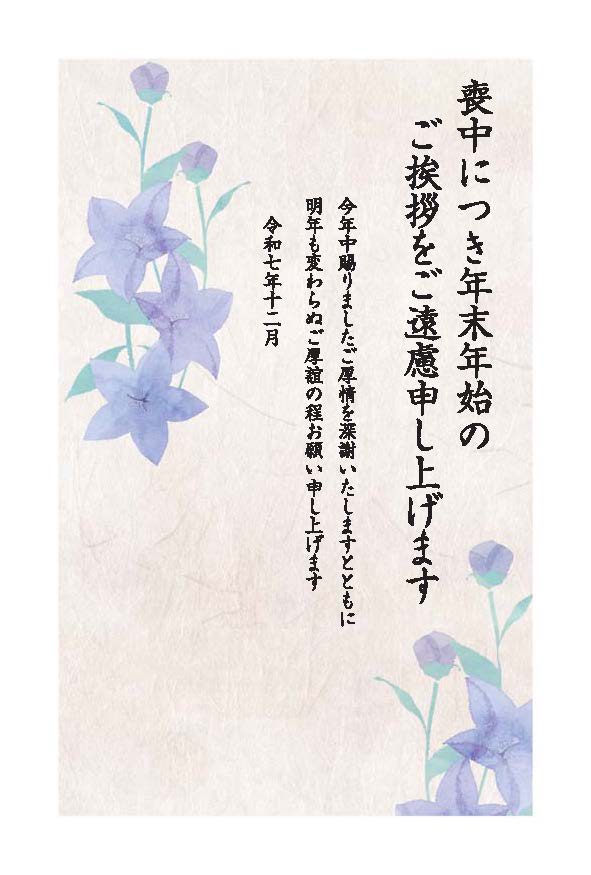 喪中につき年末年始の
ご挨拶をご遠慮申し上げます
今年中賜りましたご厚情を深謝いたしますとともに
明年も変わらぬご厚誼の程お願い申し上げます
令和七年十二月